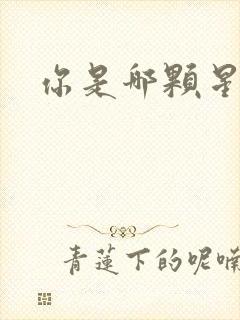 你是那顆星
青蓮下的呢喃